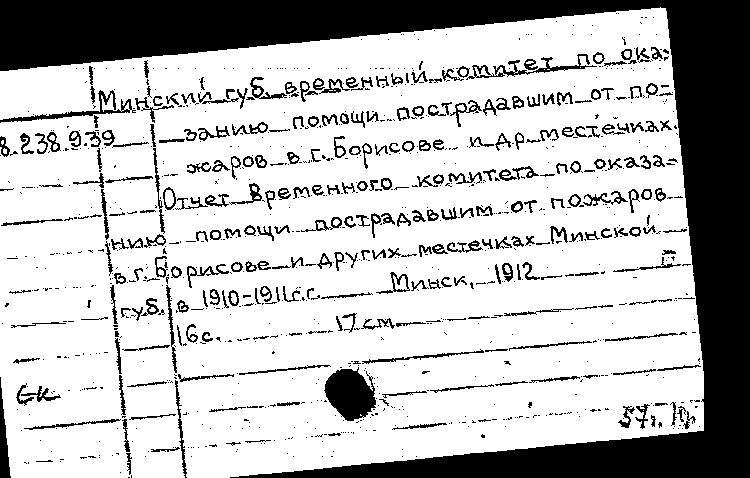 Минский губ. временный комитет по ока-
8.238.9.39 занию помощи пострадавшим от по-
жаров в г. Борисове и др. местечках.
Отчет Временного комитета по оказа-
нию помощи пострадавшим от пожаров
в г. Борисове и других местечках Минской
губ. в 1910-1911 г.г. Минск, 1912
16 с. 17 см
57г.